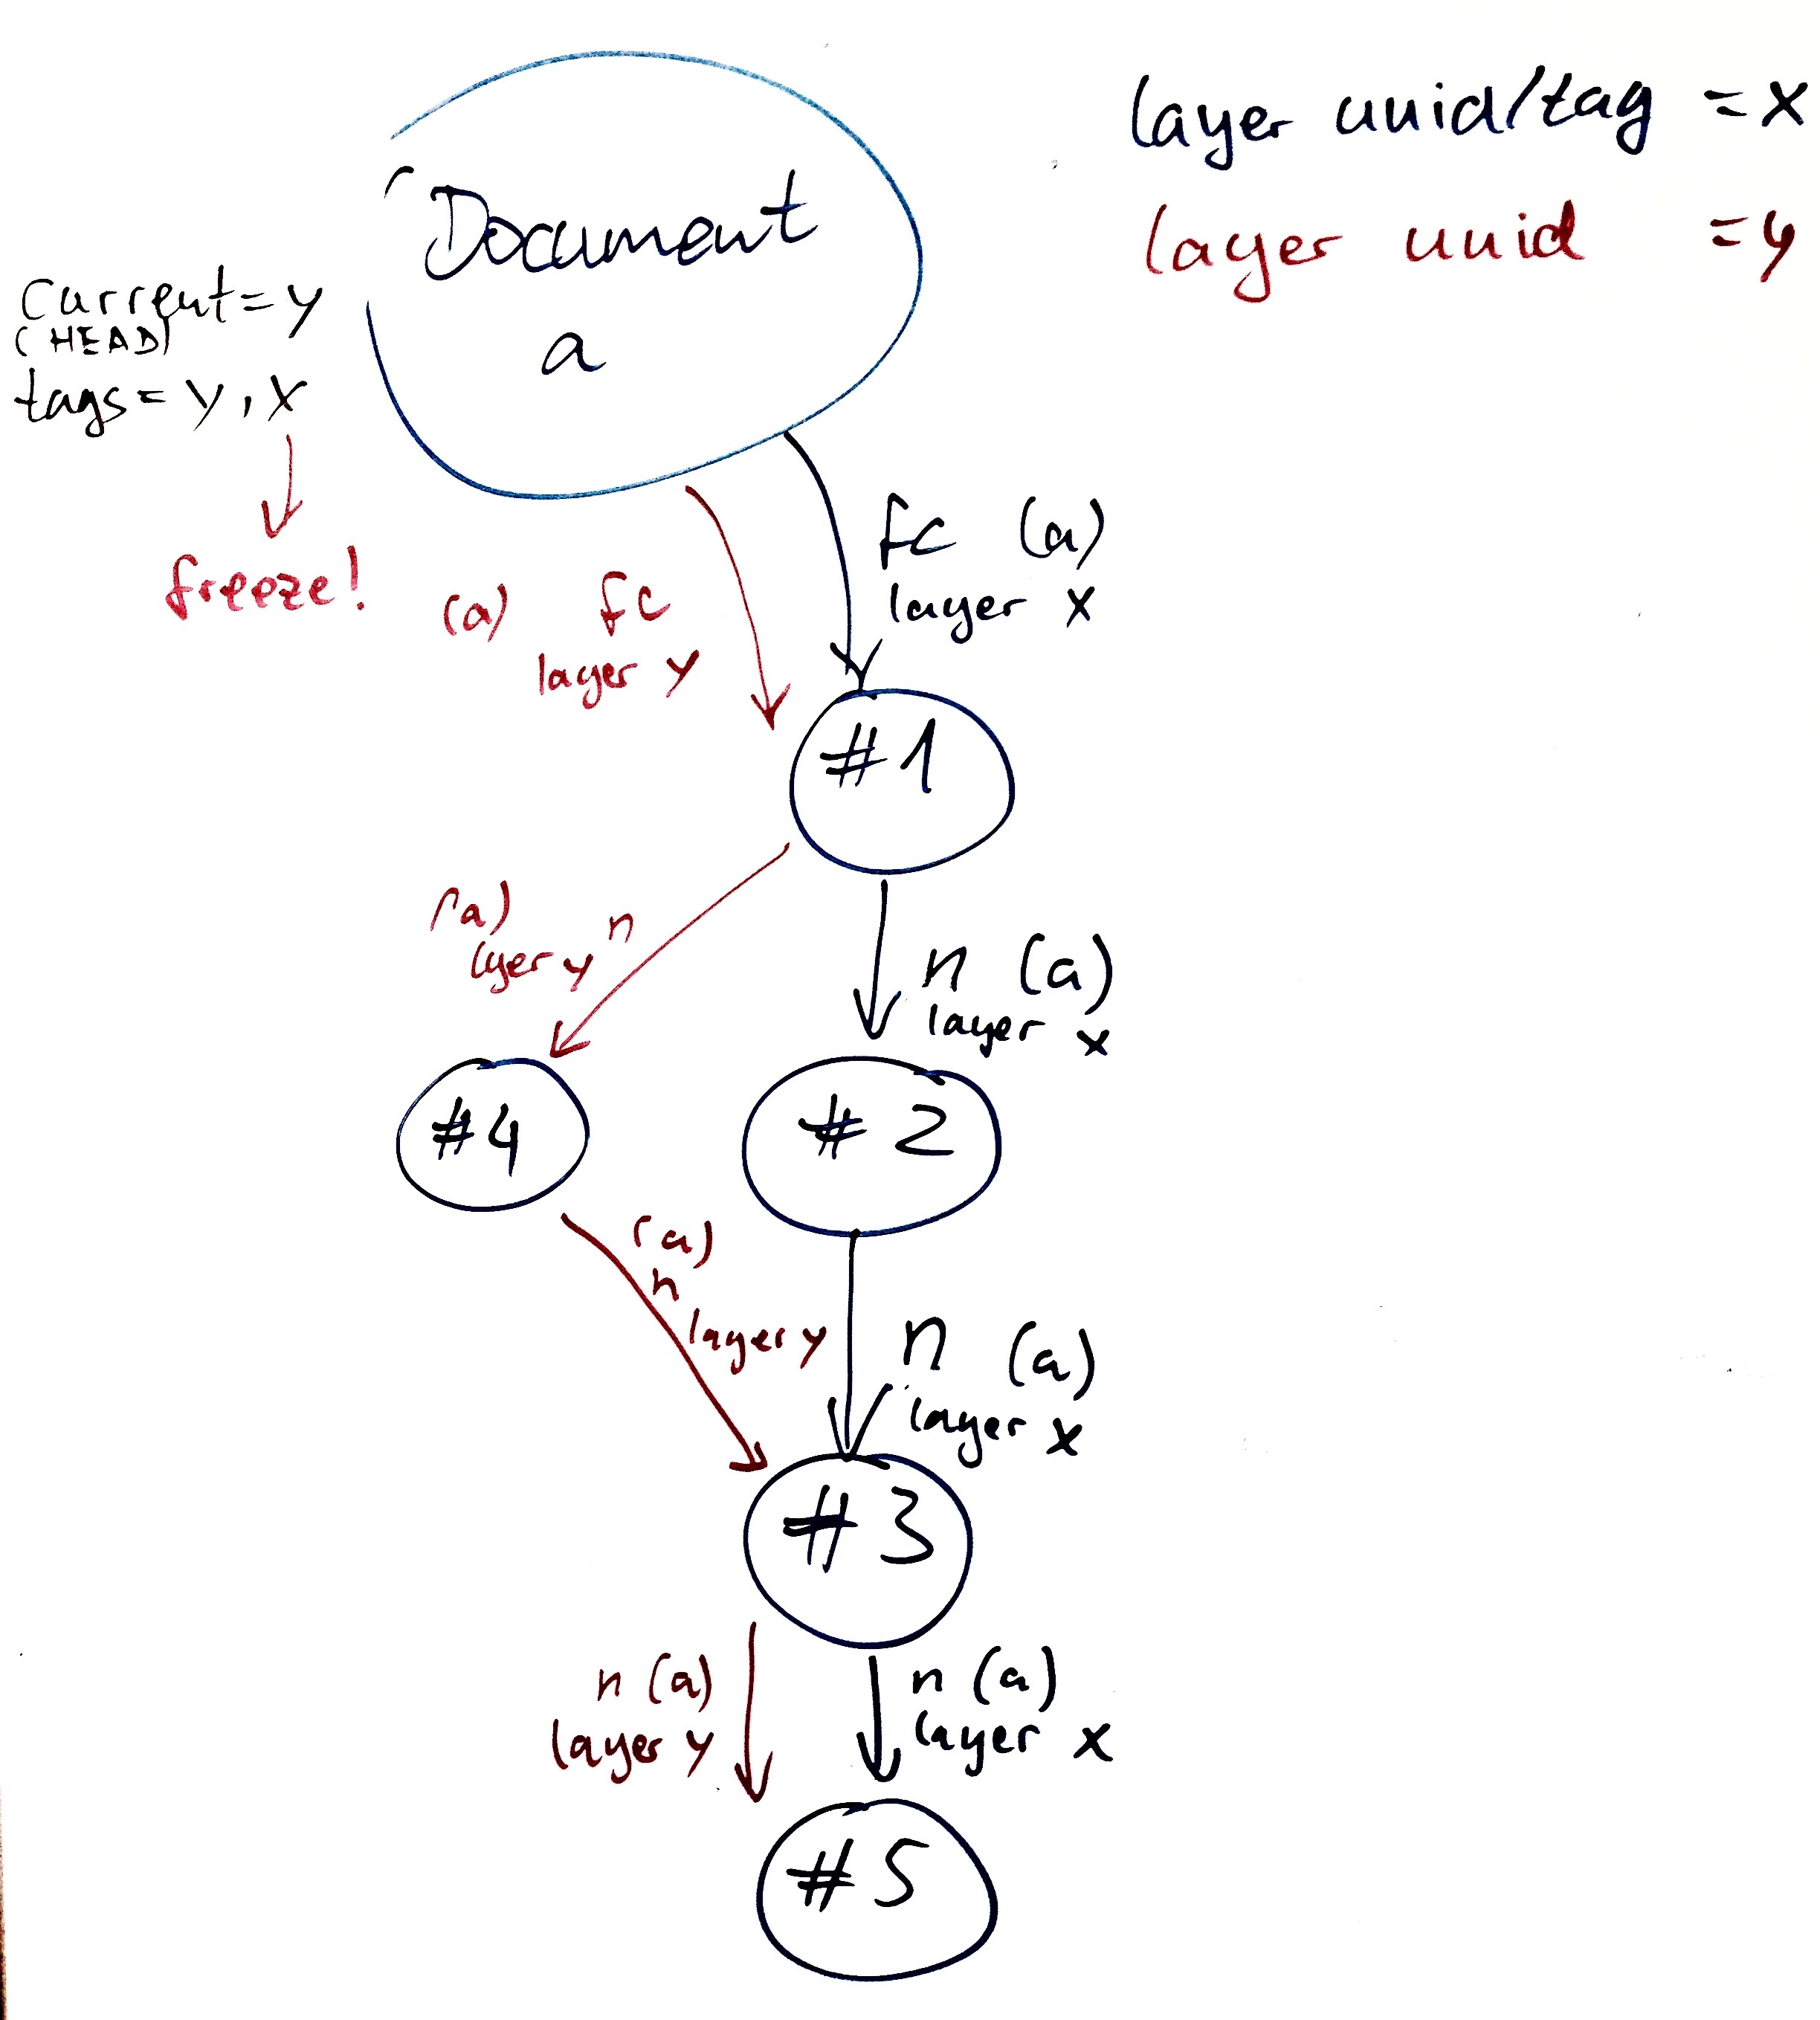 layer uuid/tag = x
layer uuid = y
Document
a
Current = y
(HEAD)
tags = y, x
freeze!
fc (a)
layer x
(a) fc
layer y
#1
(a) n
layer y
n (a)
layer x
#4
#2
(a)
n
layer y
n (a)
layer x
#3
n (a)
layer y
n (a)
layer x
#5